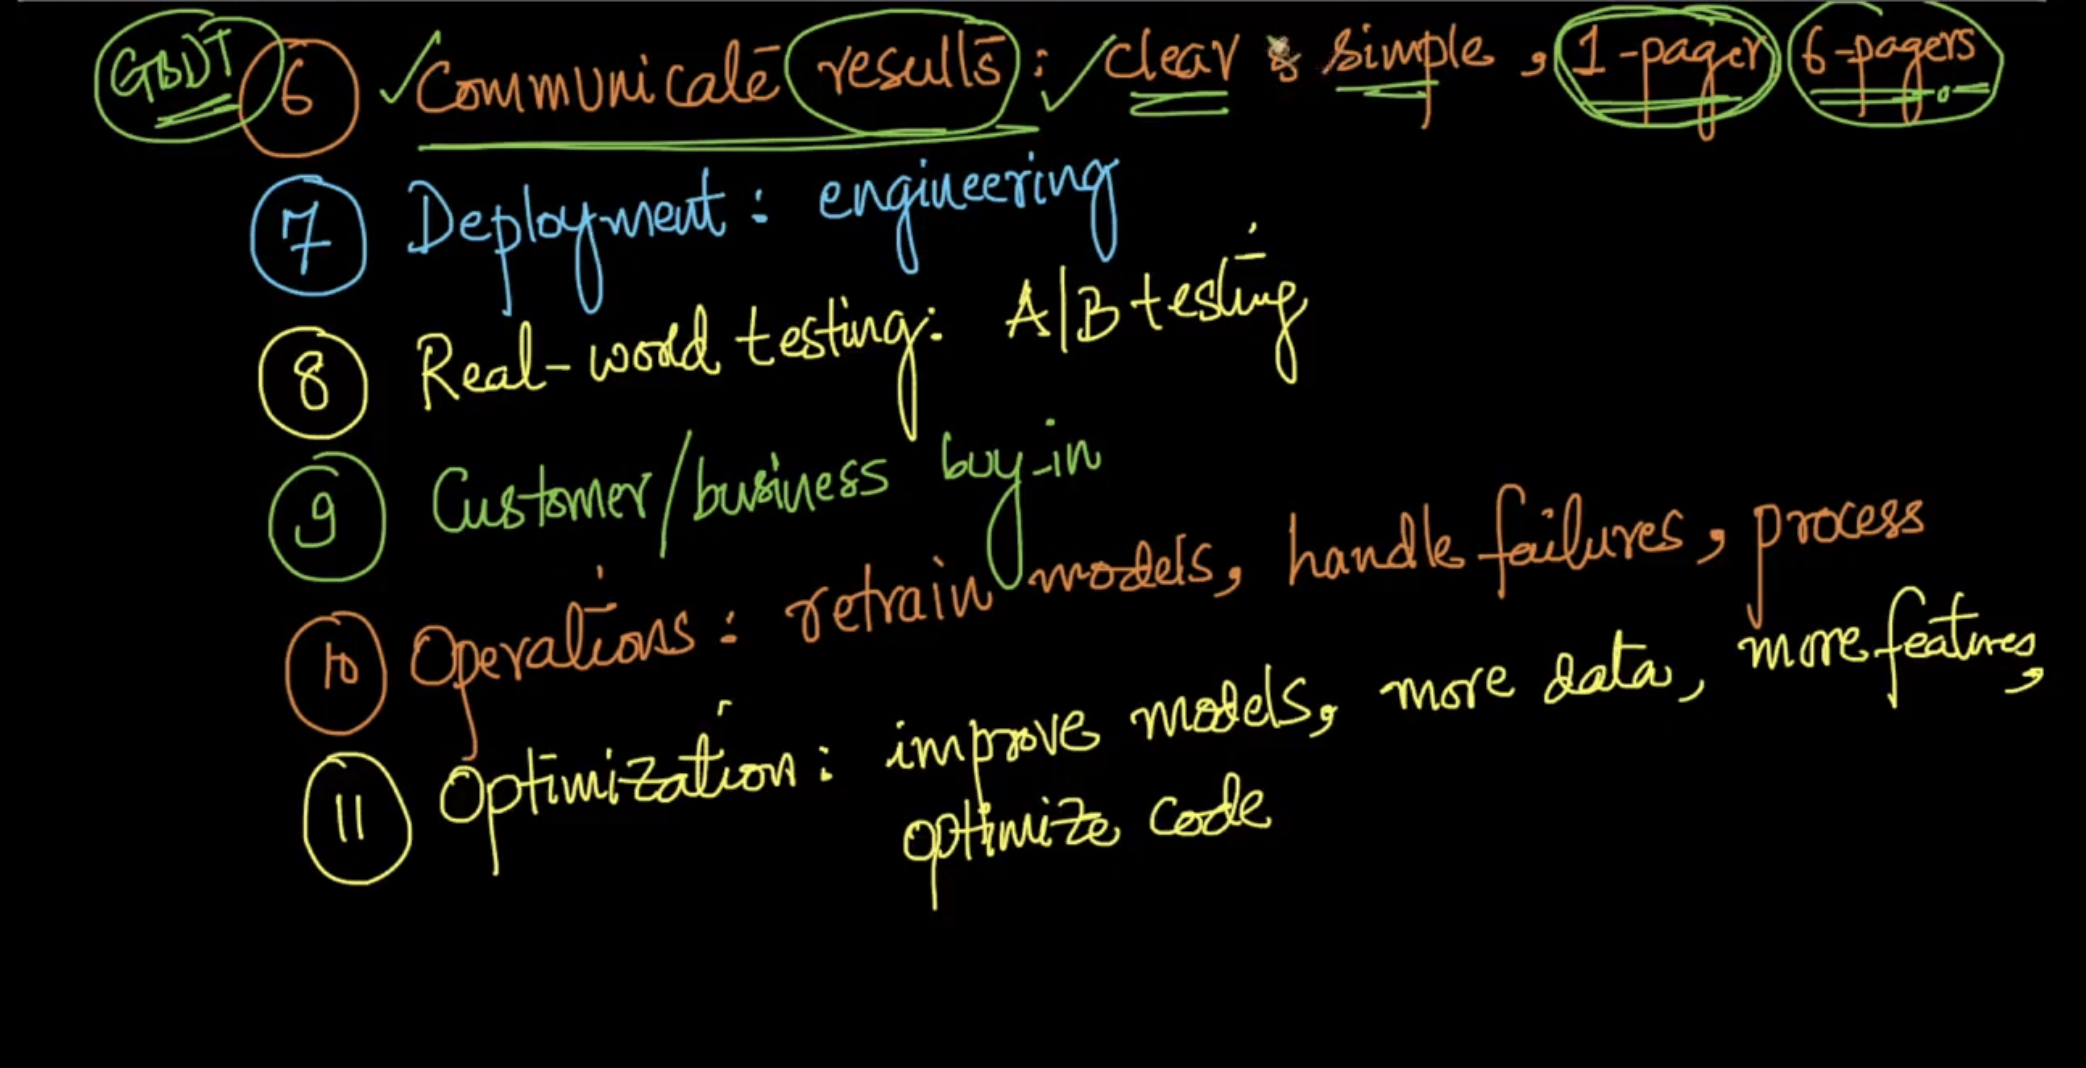 GBDT 6 ✓ Communicate results : ✓ clear & simple , 1-pager 6-pagers
7 Deployment : engineering
8 Real-world testing : A/B testing
9 Customer/business buy-in
10 Operations : retrain models, handle failures, process
11 Optimization : improve models, more data, more features,
optimize code